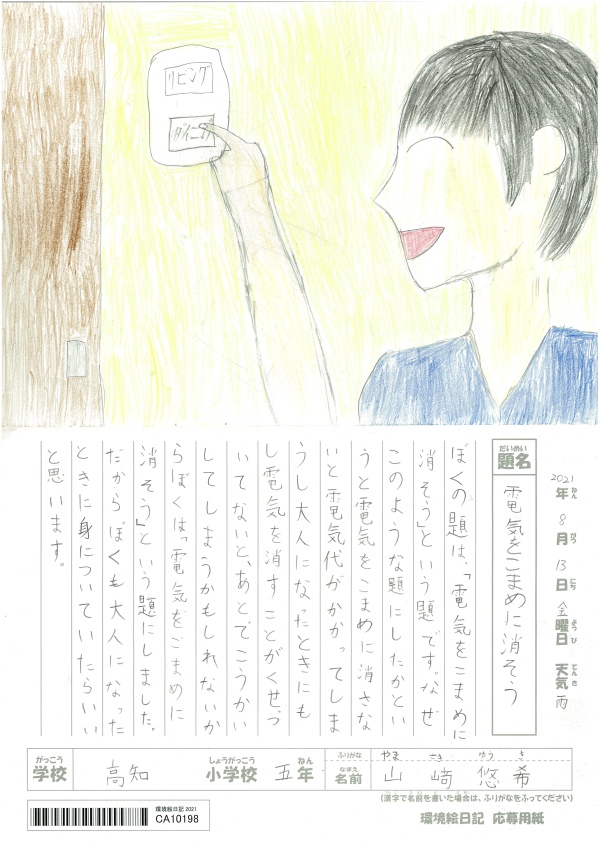 リビング
ダイニング
2021年ねん 8月がつ 13日にち 金曜日ようび 天気てんき 雨
題名だいめい 電気をこまめに消そう
ぼくの題は、「電気をこまめに
消そう」という題です。なぜ
このような題にしたかとい
うと電気をこまめに消さな
いと電気代がかかってしま
うし大人になったときにも
し電気を消すことがくせづ
いてないと、あとでこうかい
してしまうかもしれないか
らぼくは「電気をこまめに
消そう」という題にしました。
だからぼくも大人になった
ときに身についていたらいい
と思います。
がっこう しょうがっこう ねん ふりがな やま さき ゆう き
学校 高知 小学校 五年 なまえ 名前 山﨑悠希
(漢字で名前を書いた場合は、ふりがなをふってください)
環境絵日記 応募用紙
環境絵日記 2021
CA10198